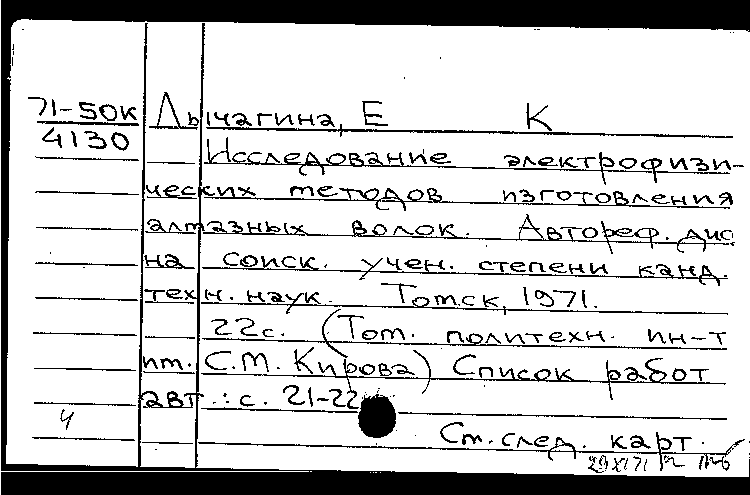 71-50к Лычагина, Е К
4130
Исследование электрофизи-
ческих методов изготовления
алмазных волок. Автореф. дис
на соиск. учен. степени канд.
техн. наук. Томск, 1971.
22с. (Том. политехн. ин-т
им. С.М. Кирова) Список работ
авт.: с. 21-22
Ч
См. след. карт.
29 XI 71